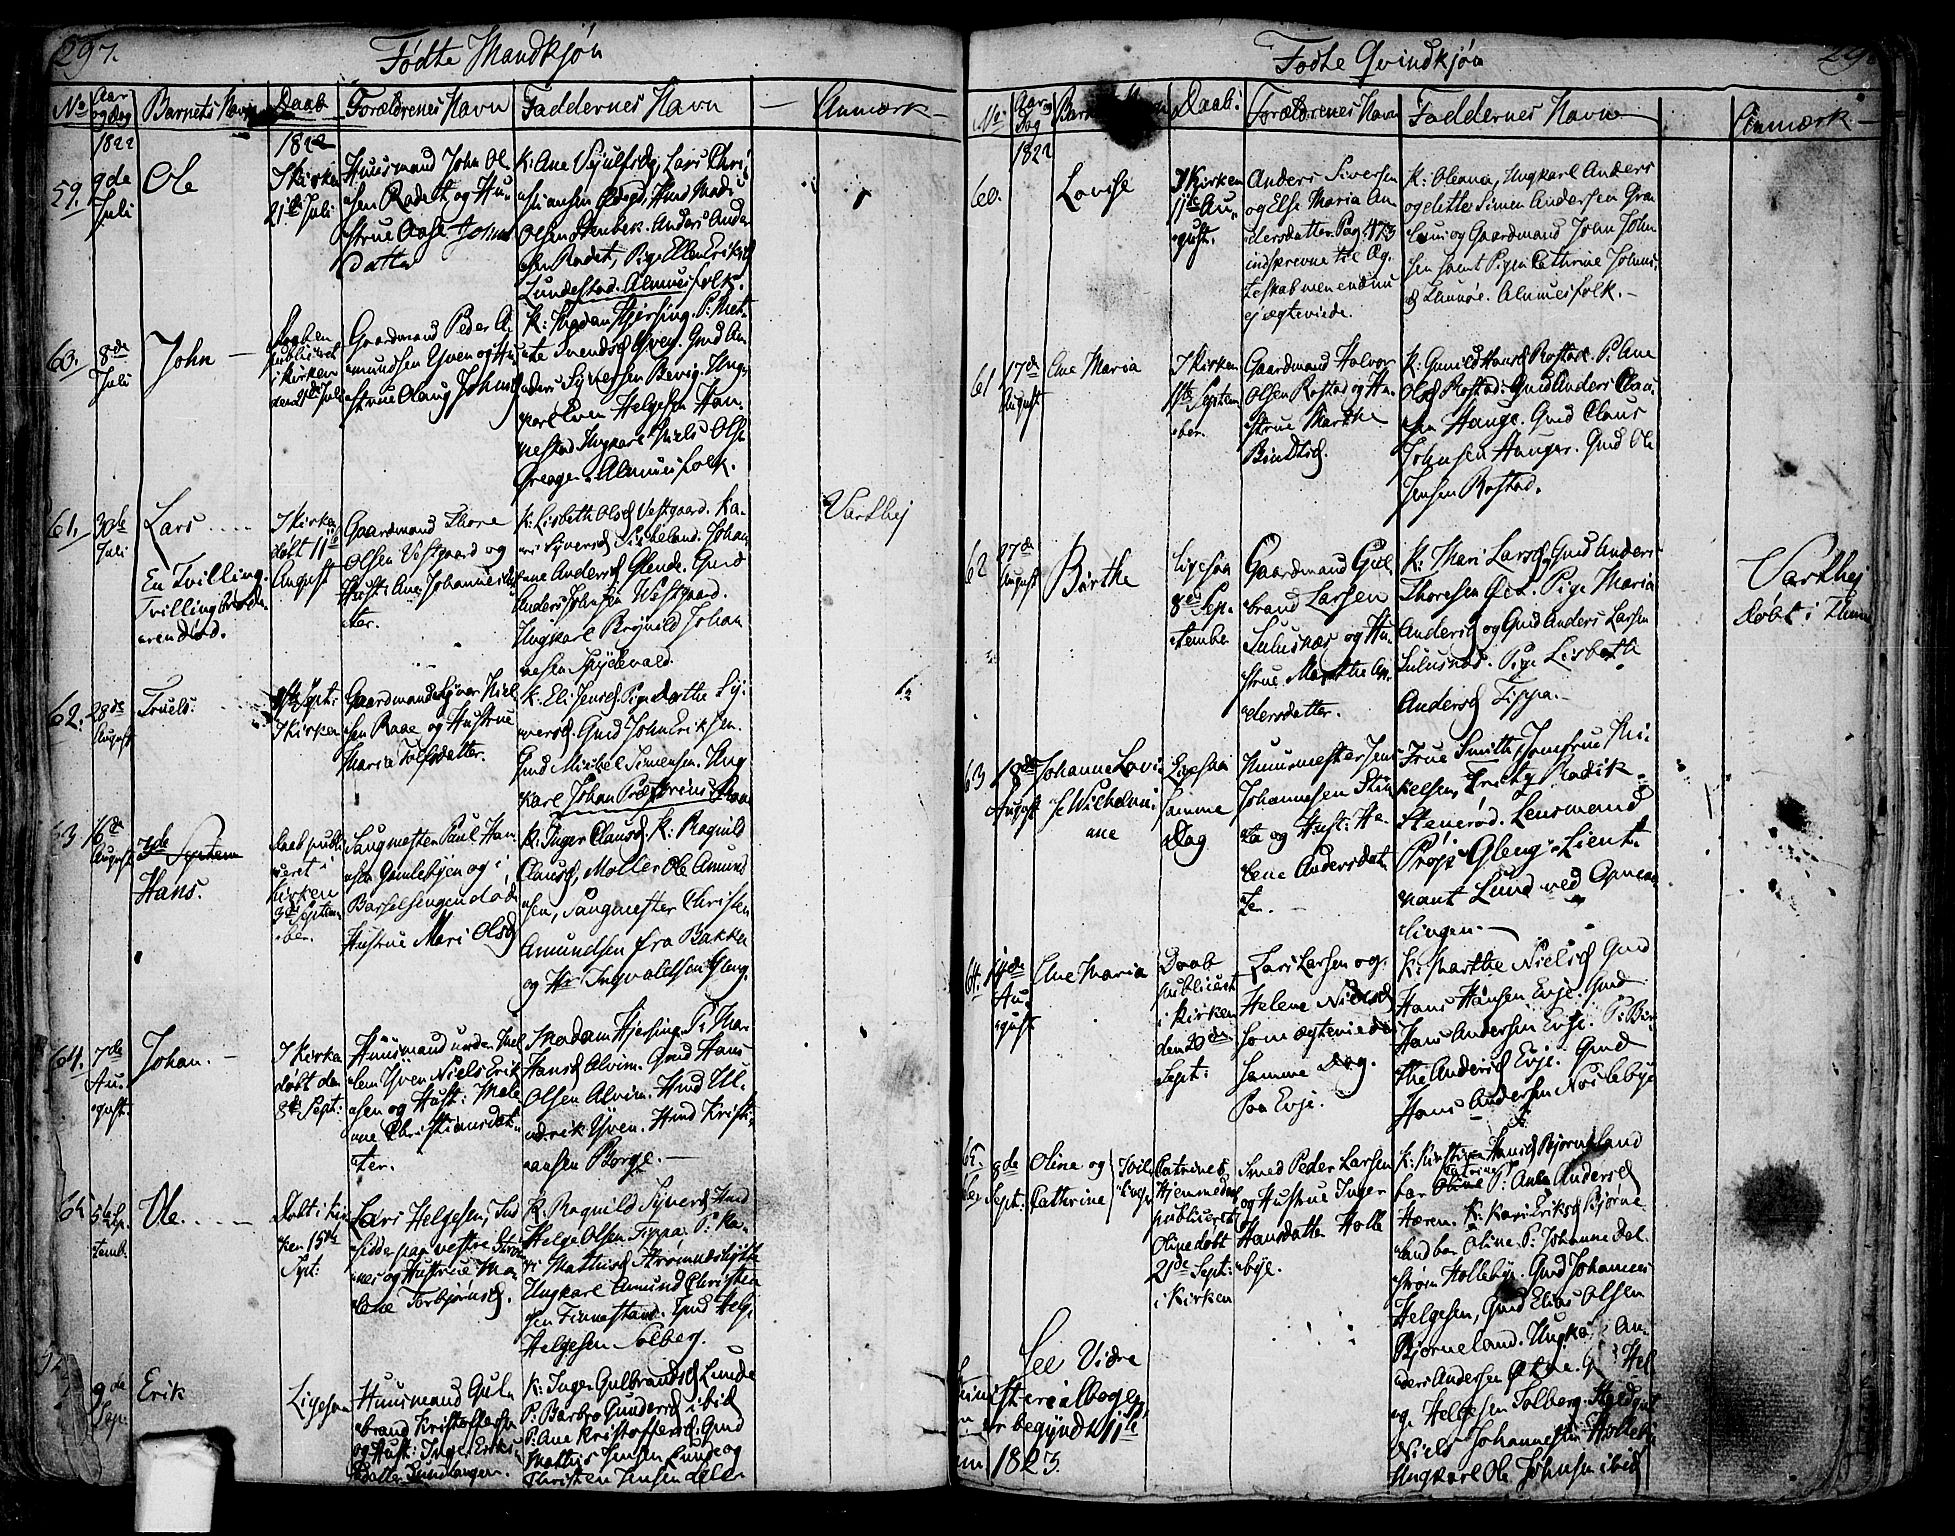 297.
Fødte Mandkjøn
No
Aar og Dag
Barnets Navn
Daab
Forældrenes Navn
Faddernes Navn
Anmærk
1822
1822
59.
9de
Juli
Ole
I Kirken
21de Juli
Huusmand John Ol
sen Radet og Hu
strue Aase Johns
datter
Olsen Stenbek. Anders Ander
sen Radet, Pige Ellen Eriksd
Lundestad. Almuesfolk.
60.
8de
Juli
John
Daaben
publiceret
i Kirken
den 21de Juli
Gaardmand Peder A
mundsen Yven og Hu
strue Olaug Johnsd
K: Madam Hjersing. P: Met
te Svendsd Yven. Gmd An
ders Syversen Bevig. Ung
karl Even Helgesen Han
nestad Ungkarl Niels Ols.
Greager. Almuesfolk.
61.
30de
Juli
Lars
En Tvilling.
Tvillingbrode
ren død.
I Kirken
døbt 11te
August
Gaardmand Thore
Olsen Vestgaard og
Hust: Ane Johannesdat
ter.
K: Lisbeth Olsd Vestgaard. Ka
ri Syversd
Johan
ne Andersd Glende. Gmd
Anders Johnsen Westgaard.
Ungkarl Brynild Johan
nesen Spydevald.
Varthej
62.
28de
August
Truels.
8de Sept:
I Kirken
Gaardmand Syver Niel
sen Raae og Hustrue
Maria Tolfsdatter.
K: Eli Jensd. Pige Dorthe Sy
versd Gmd John Eriksen.
Gmd Mickel Simensen. Ung
karl Johan Prætorius Raae
63.
16de
August
3de Septem
Hans.
Daab publi
ceret i
Kirken
3de Septem
ber.
Saugmester Paul Han
sen Gamlebyen og i
Barselsengen død
Hustrue Mari Olsd
K: Inger Clausd. K: Ragnild
Clausd, Møller Ole Amund
sen, Saugmester Christen
Amundsen fra Bakken
og Hr Ingvaldsen Gleng.
64.
7de
Au
gust.
Johan.
I Kirken
døbt den
8de Sept:
Huusmand under Mel
lem Yven Niels Erik
sen og Hust: Male
ne Christiansdat
ter.
Madam Hjersing. P: Ma
Hansd Alvim. Gmd Hans
Olsen Alvim. Hmd Ul
rik Yven. Hmd Kristi
ansen Borge.
65
5te Sep
temb.
Ole.
Døbt i Kir
ken 15de
Sept:
Lars Helgesen, Ind
sidder paa vestre
nes og Hustrue Ma
lene Torbjørnsd.
K: Ragnild Syversd Hmd
Helge Olsen Tippa. P: Ka
ri Mathisd Strømnæshytte
Ungkarl Amund Christen
sen Finnestad. Gmd Helge
Helgesen Solberg.
9de
Sep.
Erik
Ligesaa
Huusmand Gul
brand Kristoffersen
og Hust: Inger Eriks
datter Lundlangen.
K: Inger Gulbrandsd Lunde
P: Barbro Gundersd ibid
P: Ane Kristoffersd. Gmd
Mathis Jensen Lunde og
Christen Jensen
Fødte Qvindkjøn
No
Aar og
Dag
Daab:
Forældrenes Navn
Faddernes Navn
Anmærk
1822
60.
Lovise
I Kirken
11te Au
gust.
Anders Siversen
og Else Maria An
dersdatter. Pag. 173
indskrevne til Æg
teskab men endnu
ej ægteviede.
K: Oleana, Ungkarl Anders
og dette Simen Andersen Gran
og Gaardmand John John
sen samt Pigen Cathrine Johns
d Almuesfolk.
61
17de
August
Ane Maria
I Kirken
1ste Septem
ber.
Gaardmand Halvor
Olsen Rostad og Hu
strue Marthe
K: Gunild Hansd Rostad. P: Ane
Olsd Rostad. Gmd Anders Clau
sen Hauge. Gmd Claus
Johnsen Hauger. Gmd Ole
Jensen Rostad.
62
27de
August
Birthe
ligesaa
8de Sep
tember
Gaardmand Gul
brand Larsen
Sulusnæs og Hu
strue Marthe An
dersdatter.
K: Mari Larsd. Gmd Anders
Thoresen Pige Maria
Andersd og Gmd Anders Larsen
Sulusnæs. Pige Lisbeth
Andersd Tippa.
Varthej
døbt i
63
18de
August
Johanne Lovi
se Wilhelmi
ane
Ligesaa
samme
Dag
Muurmester Jens
Johannesen
og Hust: He
lene Andersdat
ter.
Frue Smith, Jomfrue Mi
kelsen, Fritz Radik
Stenerød. Lensmand
Prøis Gleng. Lieut
nant Lund ved Opmaa
lingen.
64.
14de
Au
gust
Ane Maria
Daab
publiceret
i Kirken
den 29de
Sept:
Lars Larsen og
Helene Nielsd
som ægteviedes
samme Dag.
Paa Evje.
K: Marthe Nielsd Gmd
Hans Hansen Evje. Gmd
Hans Andersen Evje. P: Bir
the Andersd Evje. Gmd
Hans Andersen Noslebye
65.
8de
Sept.
Oline og
Cathrine
Tvil
linger
Catrines
Hjemmedaab
publiceret
Oline døbt
21de Sept:
i Kirken
Smed Peder Larsen
og Hustrue Inger
Hansdatter Holle
bye.
K: Kirstine Hansd Bjørneland
bar Oline Catrine P: Anne Andersd
Hæren. K: Kari Eriksd Bjørne
land bar Oline. P: Johanne Dal
strøm Hollebye. Gmd Johannes
Helgesen, Gmd Elias Olsen
Bjørneland. Ungka An
ders Andersen Hel
ge Helgesen Solberg.
Niels Johannesen Holleby
Ungkarl Ole Johnsen ibid
See Vidre
Ministerialbogen
begyndt 11te
1823.